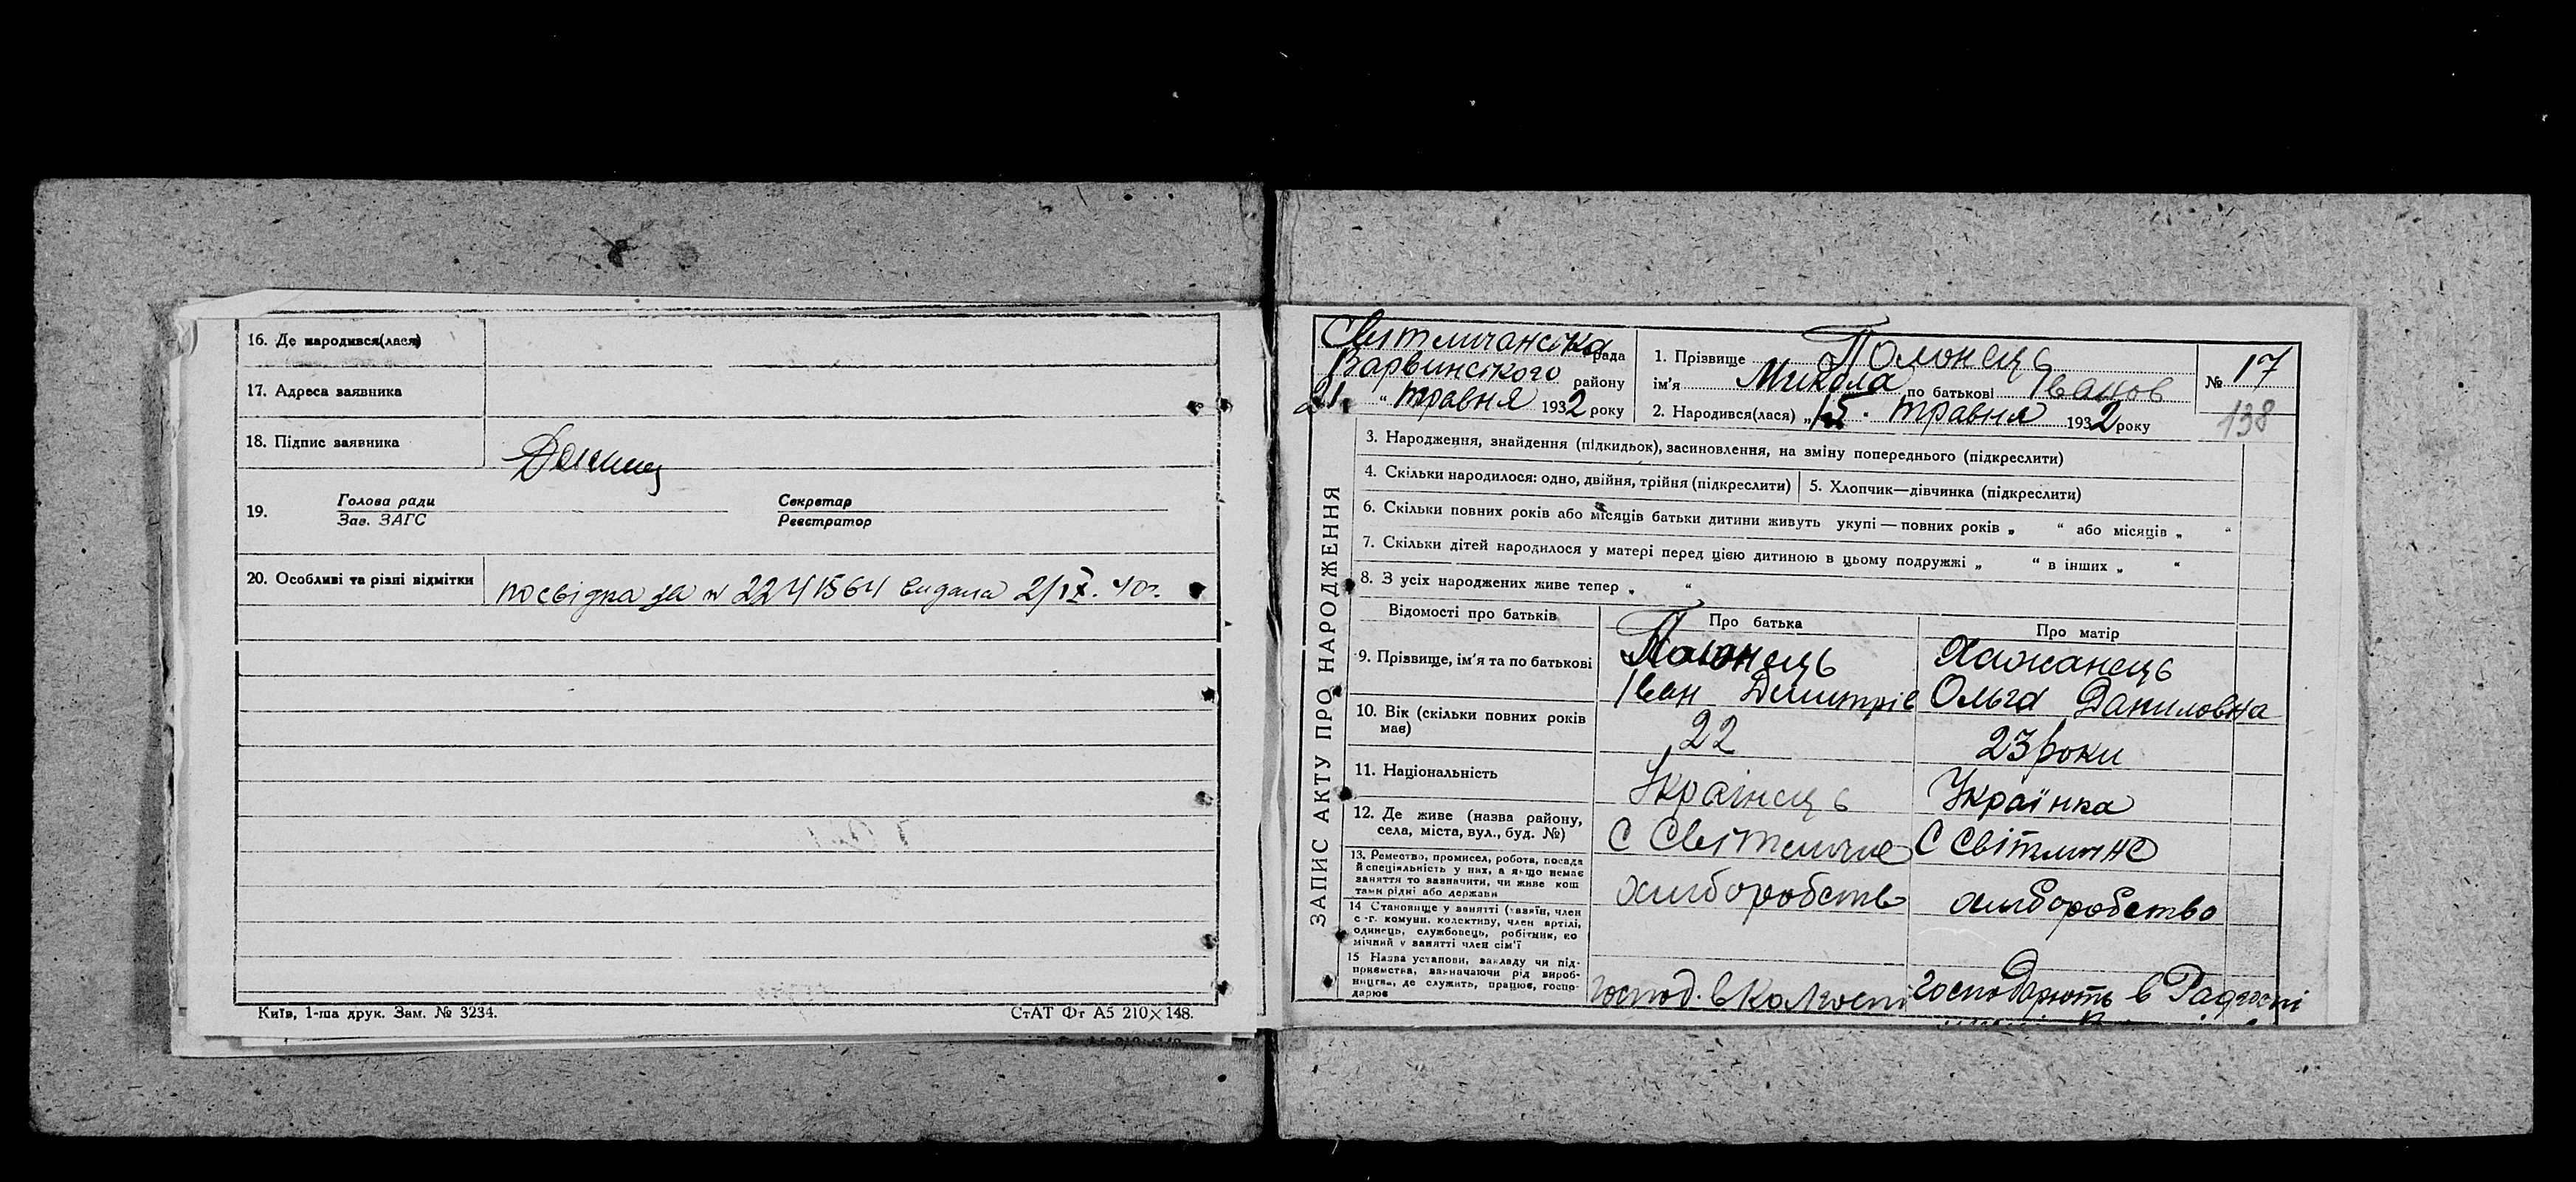 16. Де народився(лася)
17. Адреса заявника
18. Підпис заявника
19. Голова ради Секретар
Зав. ЗАГС Реєстратор
20. Особливі та різні відмітки посвідка за № 2241564 видана 2/IX. 40 г.
Київ, 1-ша друк. Зам. № 3234. СтАТ Фт А5 210×148.
ЗАПИС АКТУ ПРО НАРОДЖЕННЯ
Світличанська рада
Варвинського району
21 " травня 1932 року
1. Прізвище Полонець
ім'я Микола по батькові Іванов
2. Народився(лася) „15. травня 1932 року
№ 17
138
3. Народження, знайдення (підкидьок), засиновлення, на зміну попереднього (підкреслити)
4. Скільки народилося: одно, двійня, трійня (підкреслити) 5. Хлопчик—дівчинка (підкреслити)
6. Скільки повних років або місяців батьки дитини живуть укупі — повних років „ “ або місяців „ “
7. Скільки дітей народилося у матері перед цією дитиною в цьому подружжі „ “ в інших „ “
8. З усіх народжених живе тепер „ “
Відомості про батьків Про батька Про матір
9. Прізвище, ім'я та по батькові Полонець
Іван Дмитрів Ольга Даниловна
10. Вік (скільки повних років має) 22 23 роки
11. Національність Українець Українка
12. Де живе (назва району,
села, міста, вул., буд. №) С Світличне С Світличне
13. Ремество, промисел, робота, посада
й спеціяльність у них, а якщо немає
заняття то зазначити, чи живе кош
тами рідні або держави
хліборобство хліборобство
14 Становище у занятті (хазяїн, член
с.-г. комуни, колективу, член артілі,
одинець, службовець, робітник, по
мічний у занятті член сім'ї
15 Назва установи, закладу чи під-
приємства, зазначаючи рід вироб-
ництва, де служить, працює, госпо-
дарює
господ. в колгоспі господарють в Радгоспі